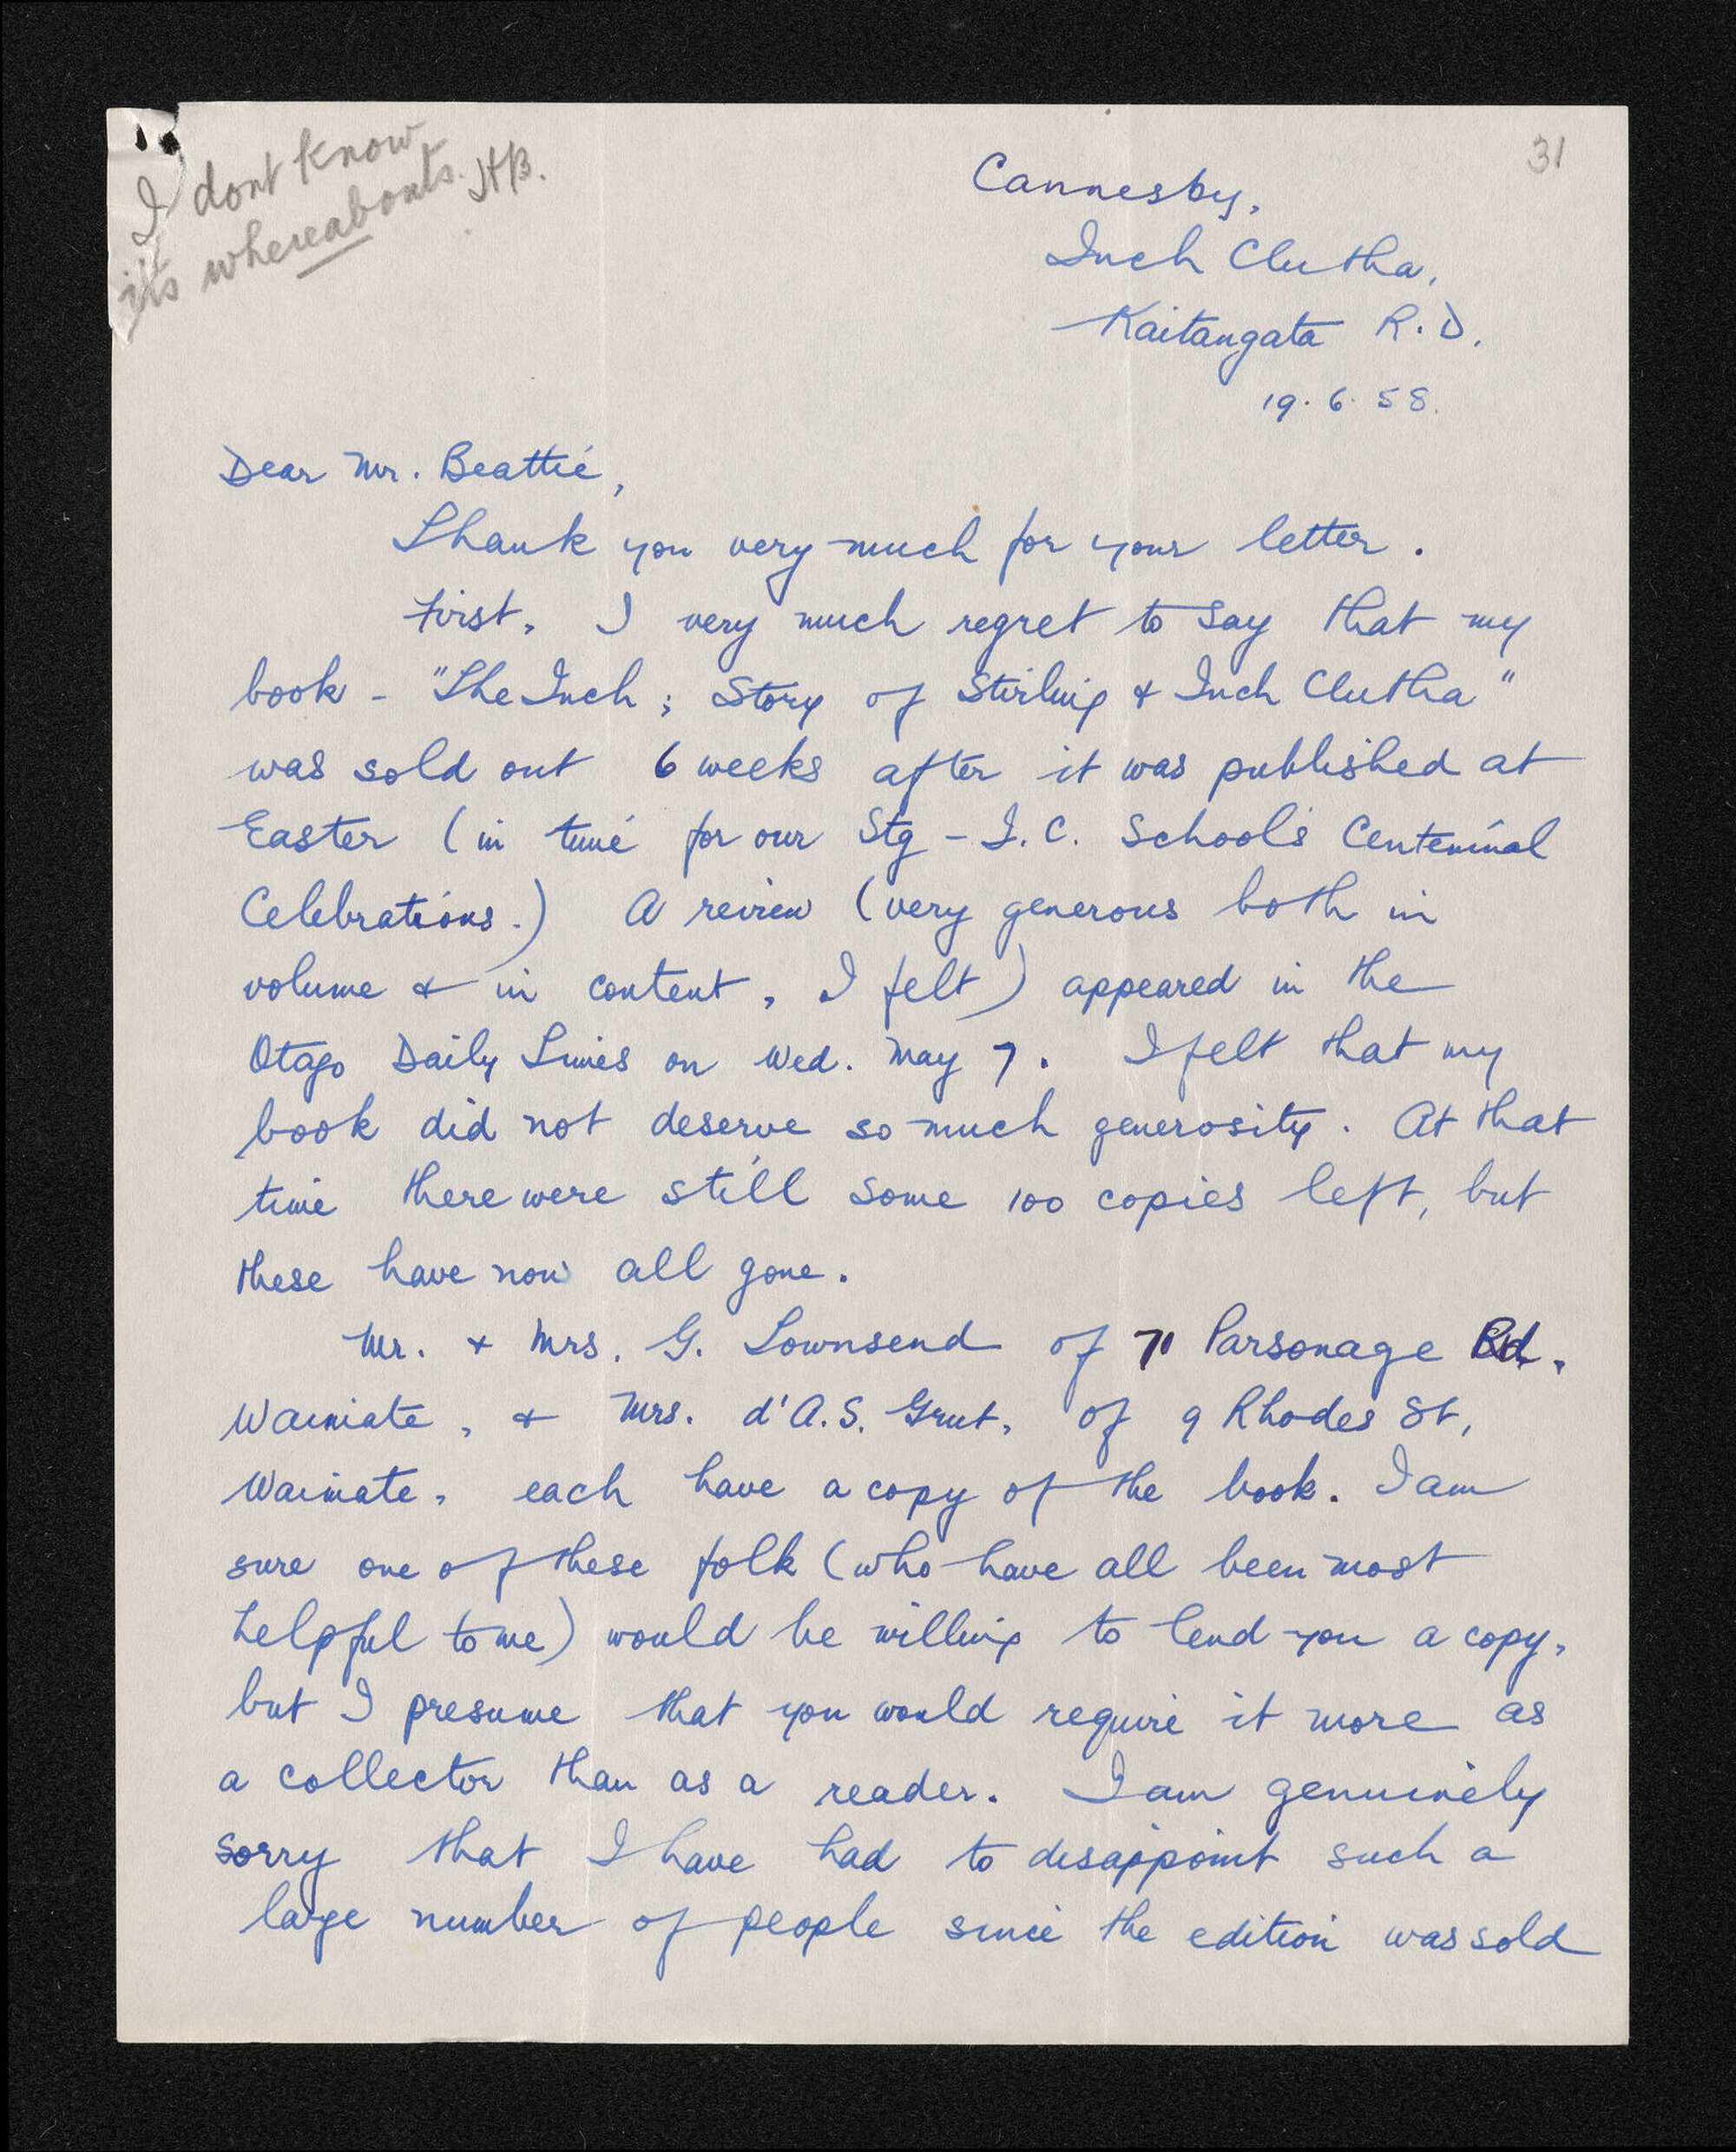 I dont know
its whereabouts. JHB.
31
Cannesby,
Inch Clutha,
Kaitangata R.D.
19.6.58.
Dear Mr. Beattie,
Thank you very much for your letter.
First, I very much regret to say that my
book - "The Inch; Story of Stirling & Inch Clutha"
was sold out 6 weeks after it was published at
Easter (in time for our Stg - I.C. School's Centennial
Celebrations.) A review (very generous both in
volume & in content, I felt) appeared in the
Otago Daily Times on Wed. May 7. I felt that my
book did not deserve so much generosity. At that
time there were still some 100 copies left, but
these have now all gone.
Mr. & Mrs. G. Townsend of 71 Parsonage Rd,
Waimate, & Mrs. d'A.S. Grut, of 9 Rhodes St,
Waimate, each have a copy of the book. I am
sure one of these folk (who have all been most
helpful to me) would be willing to lend you a copy,
but I presume that you would require it more as
a collector than as a reader. I am genuinely
sorry that I have had to disappoint such a
large number of people since the edition was sold